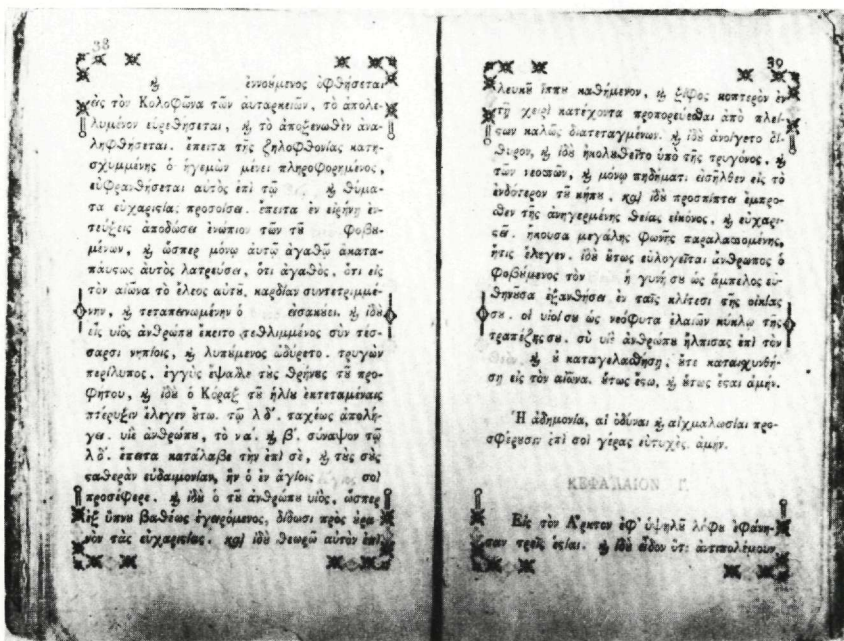 38
ϗ ἐννούμενος ὀφθήσεται
εἰς τὸν Κολοφῶνα τῶν αὐταρκειῶν, τὸ ἀπολε-
λυμένον εὑρεθήσεται, ϗ τὸ ἀποξενωθὲν ἀνα-
ληφθήσεται. ἔπειτα τῆς ζηλοφθονίας κατη-
σχυμμένης ὁ ἡγεμὼν μένει πληροφορημένος,
εὐφρανθήσεται αὐτὸς ἐπὶ τῷ ϗ θύμα-
τα εὐχαριστίας προσοίσει. ἔπειτα ἐν εἰρήνῃ ἐν-
τεύξεις ἀποδώσει ἐνώπιον τῶν τȣ̃ φοβȣ-
μένων, ϗ ὥσπερ μόνῳ αὐτῷ ἀγαθῷ ἀκατα-
παύστως αὐτὸς λατρεύσει, ὅτι ἀγαθὸς, ὅτι εἰς
τὸν αἰῶνα τὸ ἔλεος αὐτȣ̃, καρδίαν συντετριμμέ-
νην, ϗ τεταπεινωμένην ὁ εἰσακούει. ϗ ἰδȣ̀
εἷς υἱὸς ἀνθρώπȣ ἔκειτο τεθλιμμένος σὺν τέσ-
σαρσι νηπίοις, ϗ λυπȣ́μενος ὠδύρετο. τρυγὼν
περίλυπος. ἐγγὺς ἔψαλλε τὰς θρήνȣς τȣ̃ προ-
φήτου, ϗ ἰδȣ̀ ὁ Κόραξ τȣ̃ ἡλίȣ ἐκτεταμέναις
πτέρυξιν ἔλεγεν ȣ̔́τω. τῷ λδʹ. ταχέως ἀπολή-
γει. υἱὲ ἀνθρώπȣ, τὸ ναʹ. ϗ βʹ. σύναψον τῷ
λδʹ. ἔπειτα κατάλαβε τὴν ἐπὶ σὲ, ϗ τȣ̀ς σȣ̀ς
σταθερὰν εὐδαιμονίαν, ἣν ὁ ἐν ἁγίοις σοὶ
προσέφερε. ϗ ἰδȣ̀ ὁ τȣ̃ ἀνθρώπȣ υἱὸς, ὥσπερ
ἐξ ὕπνȣ βαθέως ἐγειρόμενος, δίδωσι πρὸς ȣ̓ρα-
νὸν τὰς εὐχαριστίας. ϗ ἰδȣ̀ θεωρῶ αὐτὸν ἐπὶ
39
λευκȣ̃ ἵππȣ καθήμενον, ϗ ξίφος κοπτερὸν ἐν
τῇ χειρὶ κατέχοντα προπορεύεσθαι ἀπὸ πλεί-
στων καλῶς διατεταγμένων. ϗ ἰδȣ̀ ἀνοίγετο δί-
θυρον, ϗ ἰδȣ̀ ἠκολȣθεῖτο ὑπὸ τῆς τρυγόνος, ϗ
τῶν νεοσσῶν, ϗ μόνῳ πηδήματι εἰσῆλθεν εἰς τὸ
ἐνδότερον τȣ̃ κήπȣ. ϗ ἰδȣ̀ προσπίπτει ἔμπρο-
σθεν τῆς ἀνηγερμένης θείας εἰκόνος, ϗ εὐχαρι-
στεῖ. ἤκουσα μεγάλης φωνῆς
ἥτις ἔλεγεν. ἰδȣ̀ ȣ̔́τως εὐλογεῖται ἄνθρωπος ὁ
φοβȣ́μενος τὸν ἡ γυνή σȣ ὡς ἄμπελος εὐ-
θηνȣ̃σα ἐξανθήσει ἐν ταῖς κλίτεσι τῆς οἰκίας
σȣ. οἱ υἱοί σȣ ὡς νεόφυτα ἐλαιῶν κύκλῳ τῆς
τραπέζης σȣ. σὺ υἱὲ ἀνθρώπȣ ἤλπισας ἐπὶ τὸν
ϗ ȣ̓ καταγελασθήσῃ, ȣ̓́τε καταισχυνθή-
σῃ εἰς τὸν αἰῶνα. ȣ̔́τως ἔστω, ϗ ȣ̔́τως ἔσται ἀμήν.
Ἡ ἀδημονία, αἱ ὀδύναι ϗ αἰχμαλωσίαι προ-
σφέρȣσιν ἐπὶ σοὶ γέρας εὐτυχές. ἀμήν.
ΚΕΦΑΛΑΙΟΝ Γ.
Εἰς τὸν Ἄρκτον ἐφ' ὑψηλȣ̃ λόφȣ ἐφάνη-
σαν τρεῖς ἑστίαι. ϗ ἰδȣ̀ εἶδον ὅτι ἀντιπολέμουν